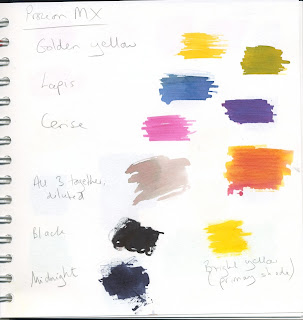 Procion MX
Golden yellow
Lapis
Cerise
All 3 together,
diluted
Black
Midnight
Bright yellow
(primary shade)